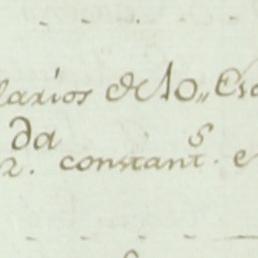 larios de 10,, Esc
da s
2. constant. e